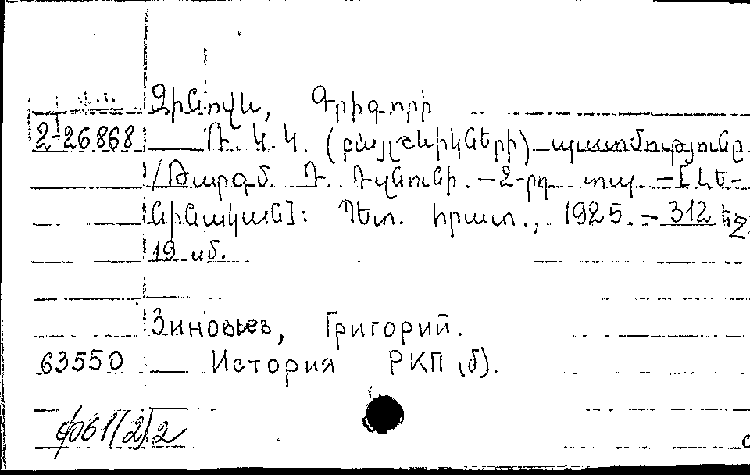 Զինովև, Գրիգորի
2-26868 Ռ. Կ. Կ. (բոլշևիկների) պատմությունը
/Թարգմ. Դ. Դզնունի. - 2-րդ տպ. - [Լե-
նինական]: Պետ. հրատ., 1925. - 312 էջ
19 սմ.
Зиновьев, Григорий.
63550 История РКП(б).